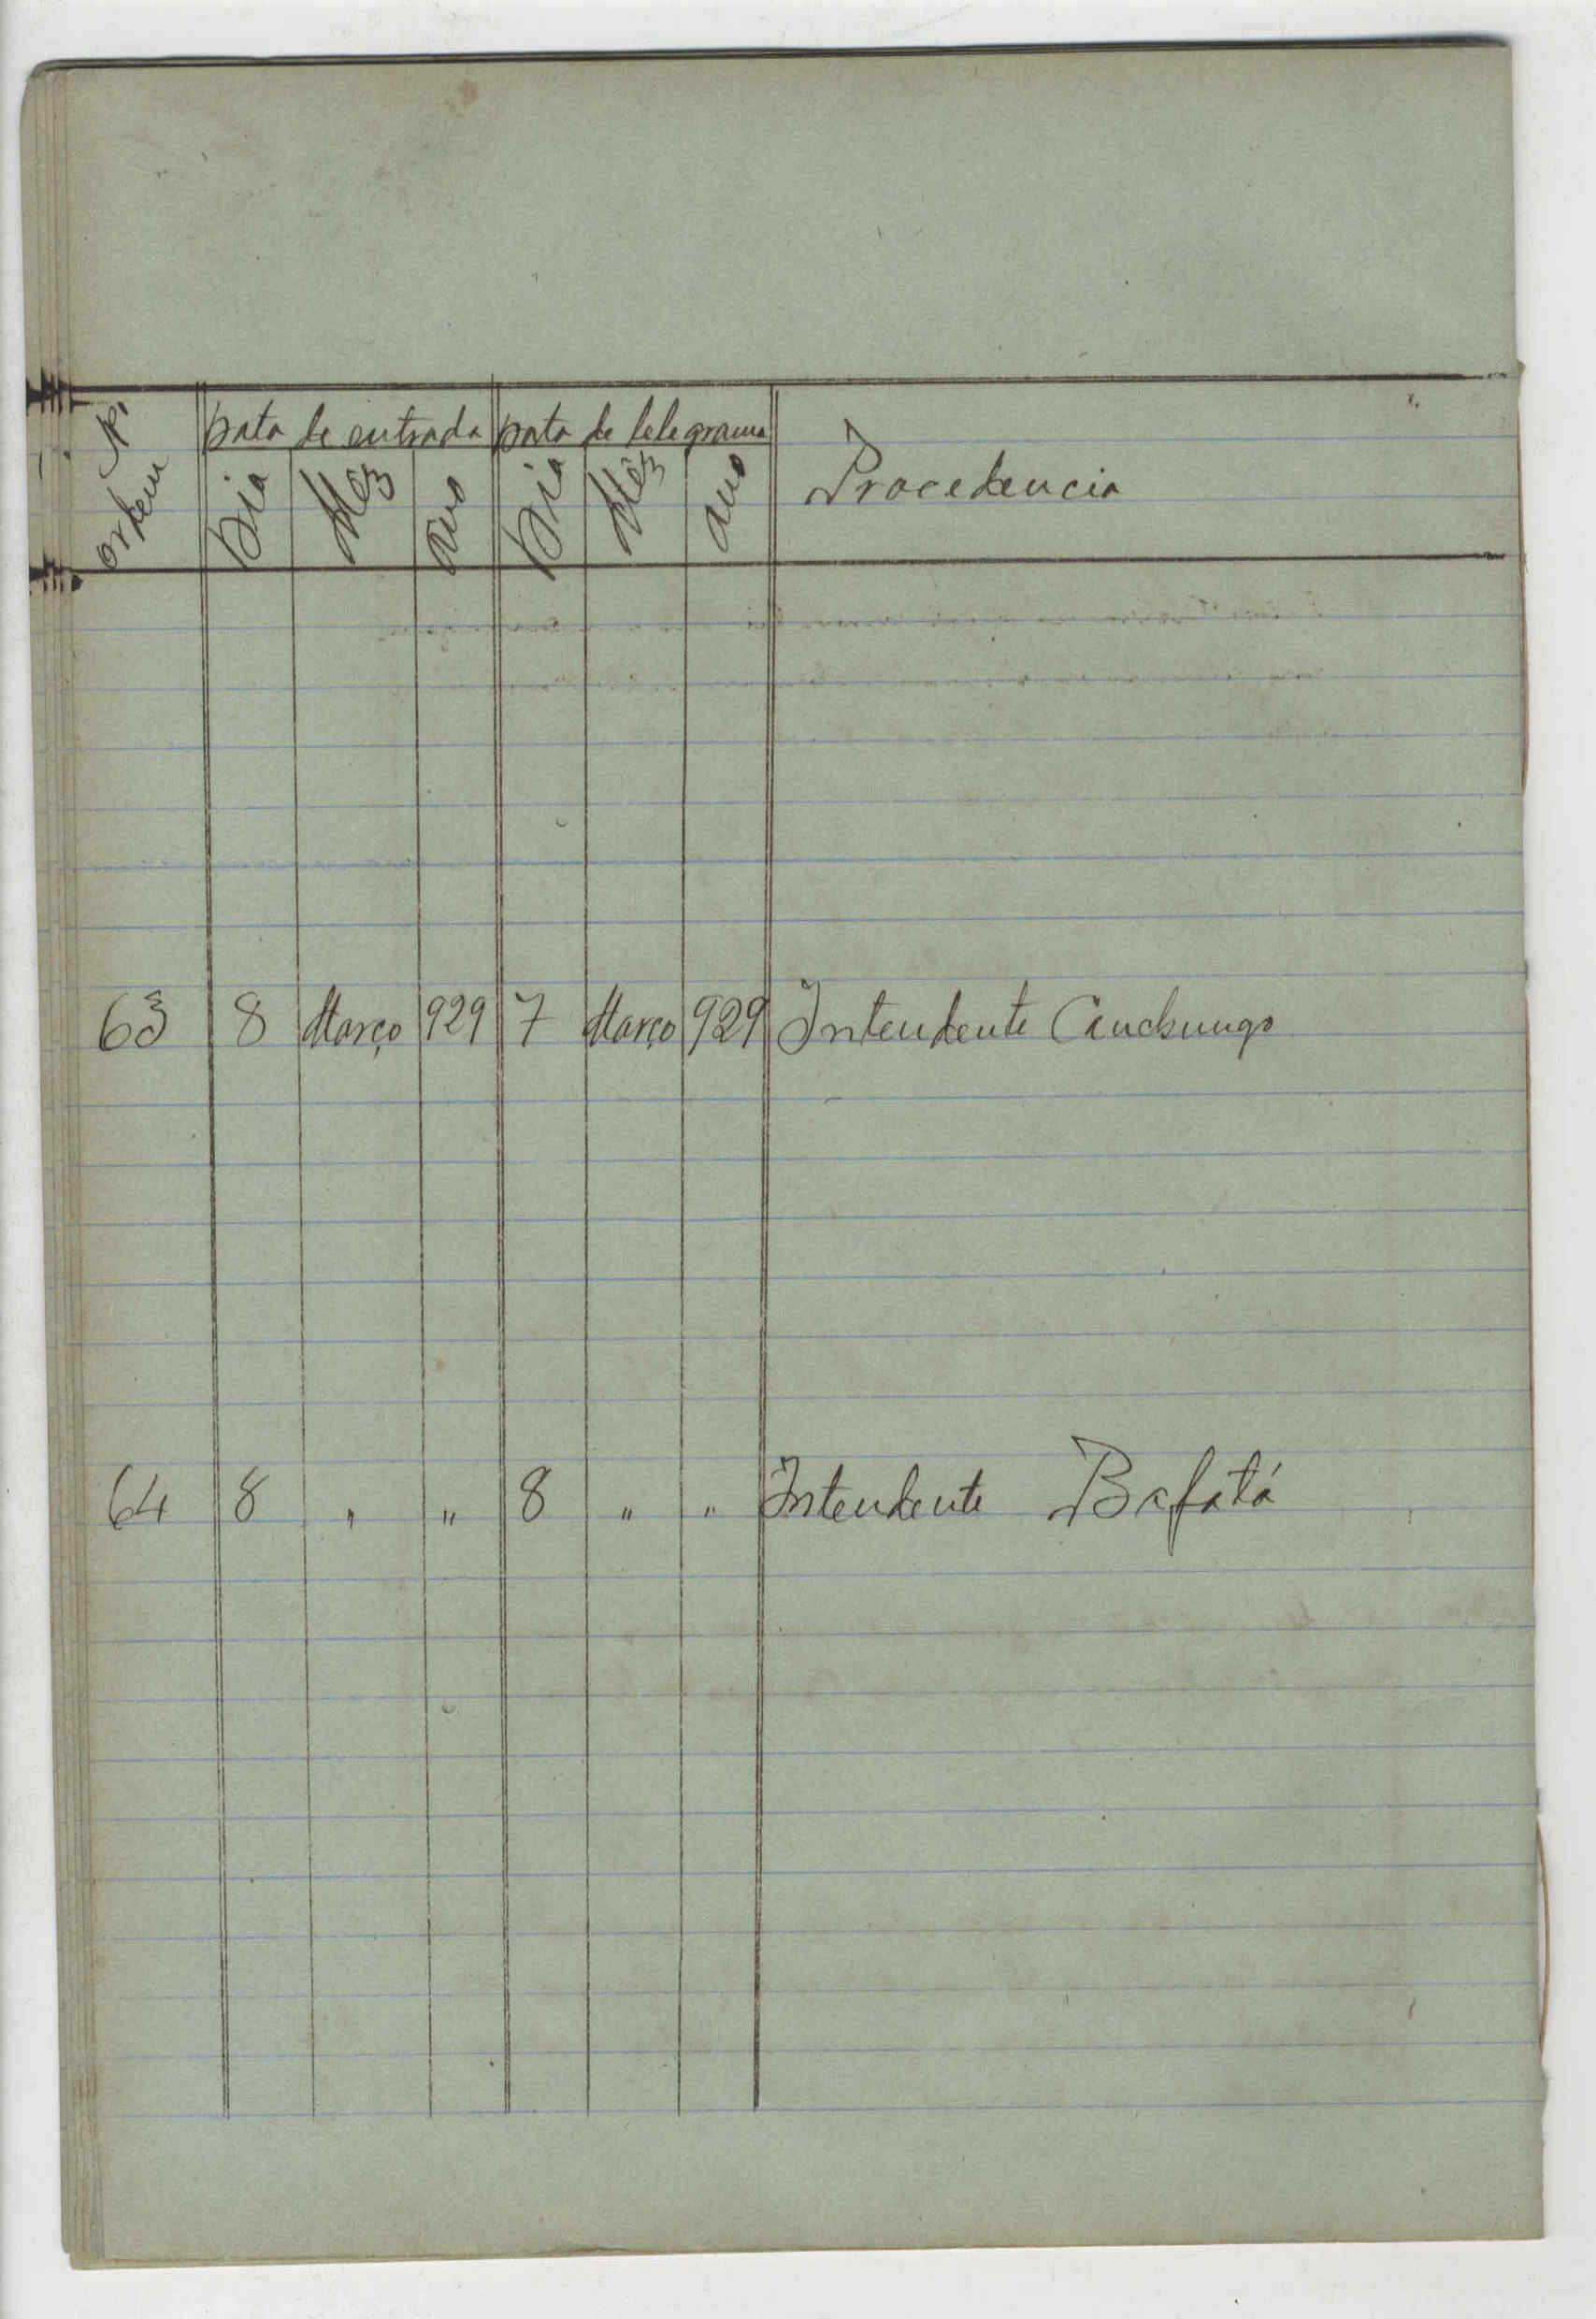 Nº ordem | Data de entrada | Data de telegrama | Procedencia
Dia | Mês | Ano | Dia | Mês | Ano
63 | 8 | Março | 929 | 7 | Março | 929 | Intendente Canchungo
64 | 8 | " | " | 8 | " | " | Intendente Bafatá